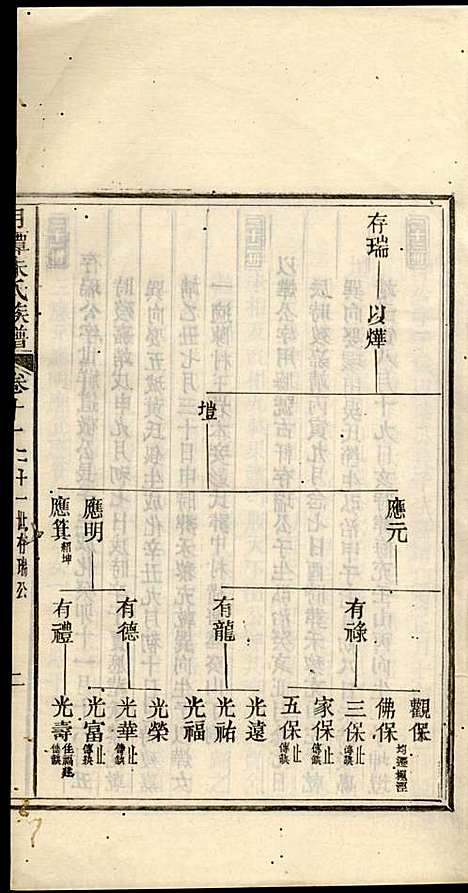 存瑞
以燁
塏
應元
應明
應箕 賴坤
有祿
有龍
有德
有禮
觀保
佛保 均遷楓涇
三保止
家保止 傳缺
五保止 傳缺
光遠
光祐
光福
光榮
光華止 傳缺
光富止 傳缺
光壽 住福建 傳缺
月潭朱氏族譜
卷十一
二十一世存瑞公
一